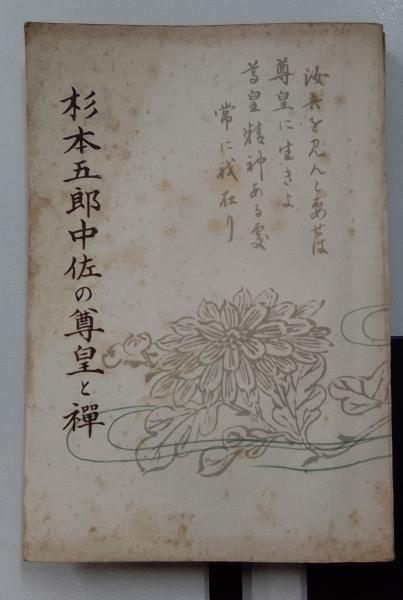 汝吾を見んと要せば
尊皇に生きよ
尊皇精神ある處
常に我在り
杉本五郎中佐の尊皇と禪